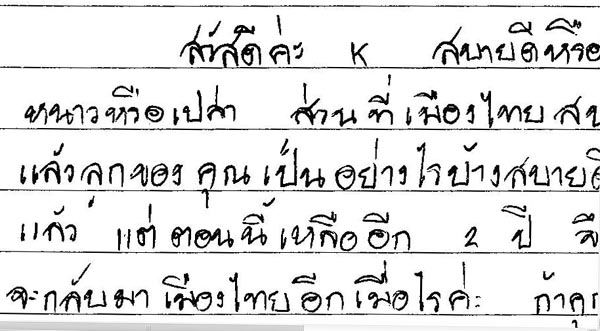 สวัสดีค่ะ K สบายดีหรือ
หนาวหรือเปล่า ส่วนที่เมืองไทย
แล้วลูกของคุณเป็นอย่างไรบ้างสบายดี
แล้ว แต่ตอนนี้เหลืออีก 2 ปี
จะกลับมาเมืองไทยอีกเมื่อไรค่ะ